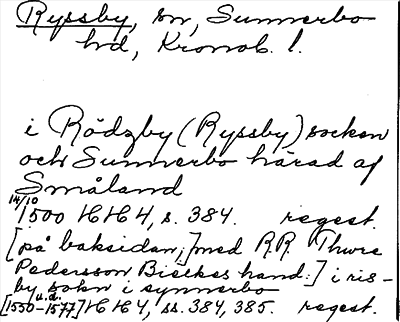 Ryssby, sn, Sunnerbo
hd, Kronob. l.
i Rödzby (Ryssby) socken
och Sunnerbo härad af
Småland
14/10
1500 HH 4, s. 384. regest.
[på baksidan;] med R.R. Thure
Pedersson Bielkes hand:] i ris-
by sokn i synnerbo
u.d.
[1550-1577] HH 4, ss. 384, 385. regest.